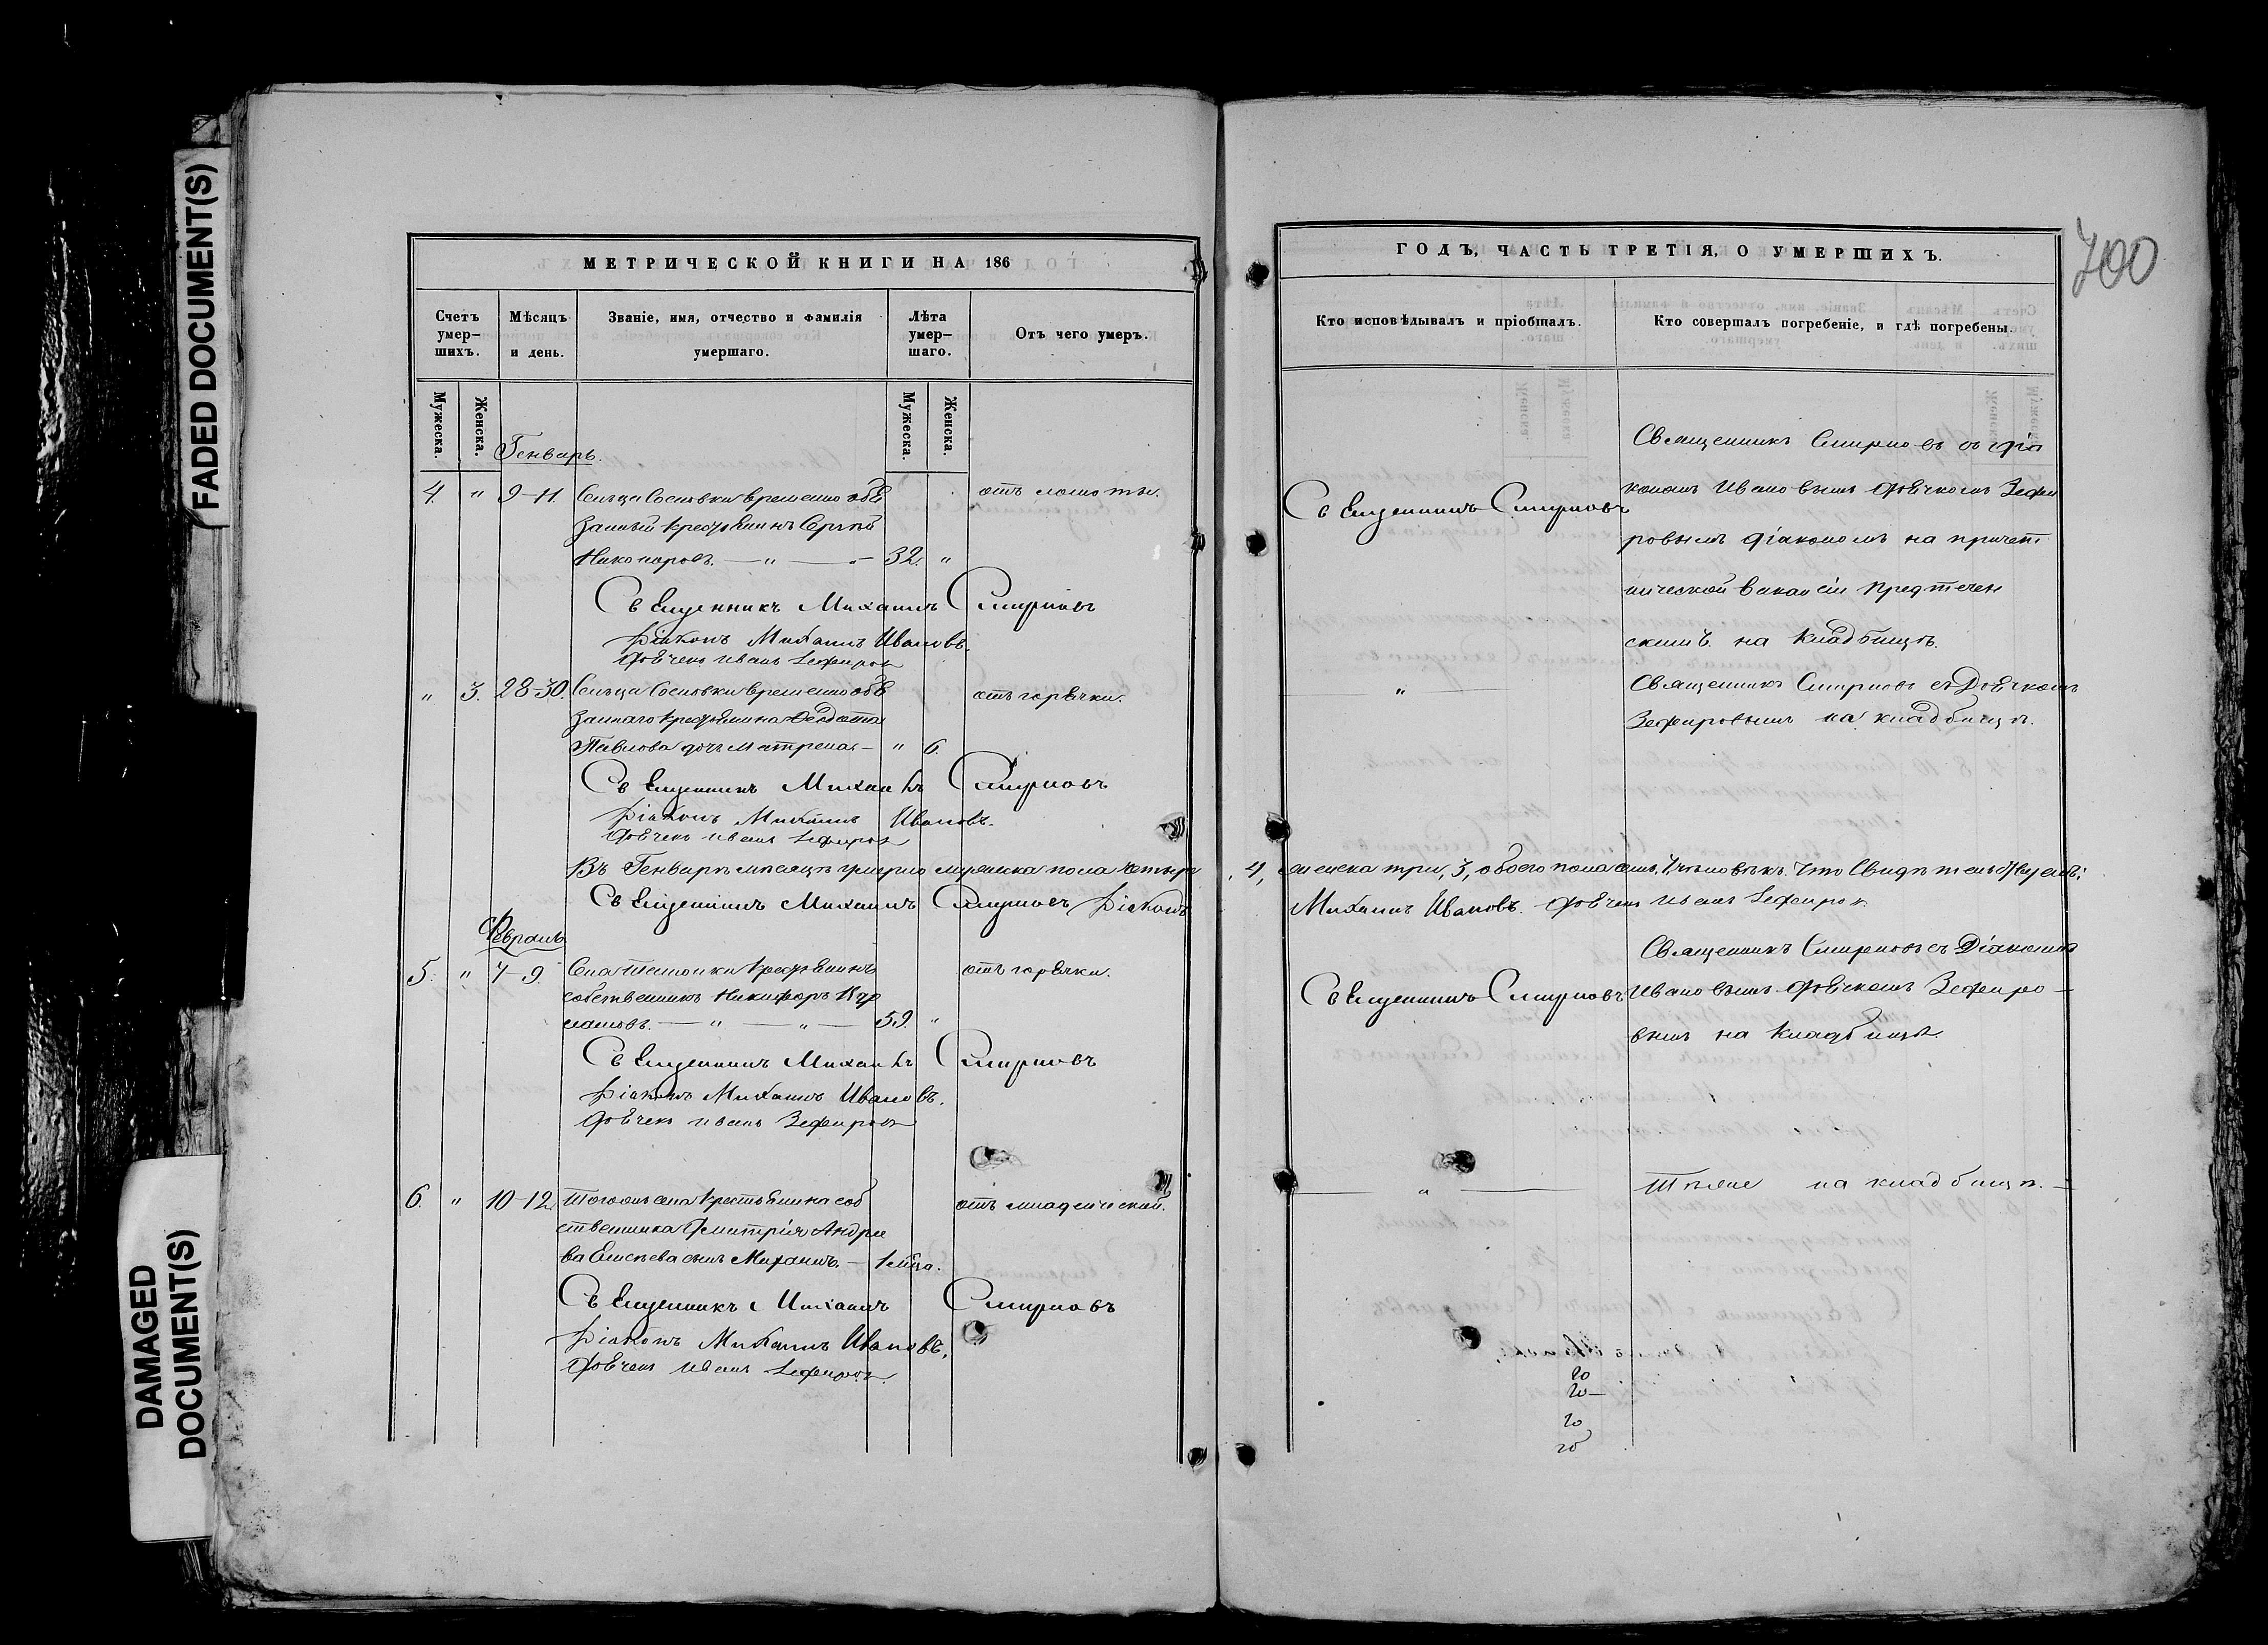 FADED DOCUMENT(S)
DAMAGED
DOCUMENT(S)
МЕТРИЧЕСКОЙ КНИГИ НА 186
Счетъ
умер-
шихъ.
Мѣсяцъ
и день.
Званіе, имя, отчество и фамилія
умершаго.
Лѣта
умер-
шаго.
Отъ чего умеръ.
Мужеска.
Женска.
Мужеска.
Женска.
Генварь.
4. " 9-11. Сельца Сосновки временно обя отъ ломоты.
занный крестьянинъ Сергѣй
Никоноровъ. — " — " — 32. "
Священникъ Михаилъ Смирновъ
Діаконъ Михаилъ Ивановъ.
Дьячекъ Иванъ Зефировъ
" 3. 28-30. Сельца Сосновки временно обя отъ горячки.
заннаго крестьянина Ѳедота
Павлова дочь Матрена — " 6.
Священникъ Михаилъ Смирновъ
Діаконъ Михаилъ Ивановъ.
Дьячекъ Иванъ Зефировъ
Въ Генварѣ мѣсяцѣ умерло мужеска пола четыре
Священникъ Михаилъ Смирновъ Діаконъ
Февраль
5. " 7-9. крестьянинъ отъ горячки.
собственникъ Никифоръ
59. "
Священникъ Михаилъ Смирновъ
Діаконъ Михаилъ Ивановъ.
Дьячекъ Иванъ Зефировъ
6. " 10-12. Того же села крестьянина соб отъ младенческой.
ственника Димитрія Андре
ева сынъ Михаилъ. — 1 мѣсяц.
Священникъ Михаилъ Смирновъ
Діаконъ Михаилъ Ивановъ.
Дьячекъ Иванъ Зефировъ
700
ГОДЪ, ЧАСТЬ ТРЕТІЯ, О УМЕРШИХЪ.
Кто исповѣдывалъ и пріобщалъ.
Кто совершалъ погребеніе, и гдѣ погребены.
Священникъ Смирновъ съ діа
Священникъ Смирновъ
кономъ Ивановымъ дьячкомъ Зефи
ровымъ діакономъ на причет
нической вакансіи Предтечен
скимъ на кладбищѣ.
— " — Священникъ Смирновъ съ Дьячкомъ
Зефировымъ на кладбищѣ.
4, женска три, 3, обоего пола семь, 7, человѣкъ. Что свидѣтельствуемъ:
Михаилъ Ивановъ. Дьячекъ Иванъ Зефировъ
Священникъ Смирновъ съ Діакономъ
Священникъ Смирновъ Ивановымъ дьячкомъ Зефиро-
вымъ на кладбищѣ.
— " — Тѣже на кладбищѣ. —
20
20-
20
20